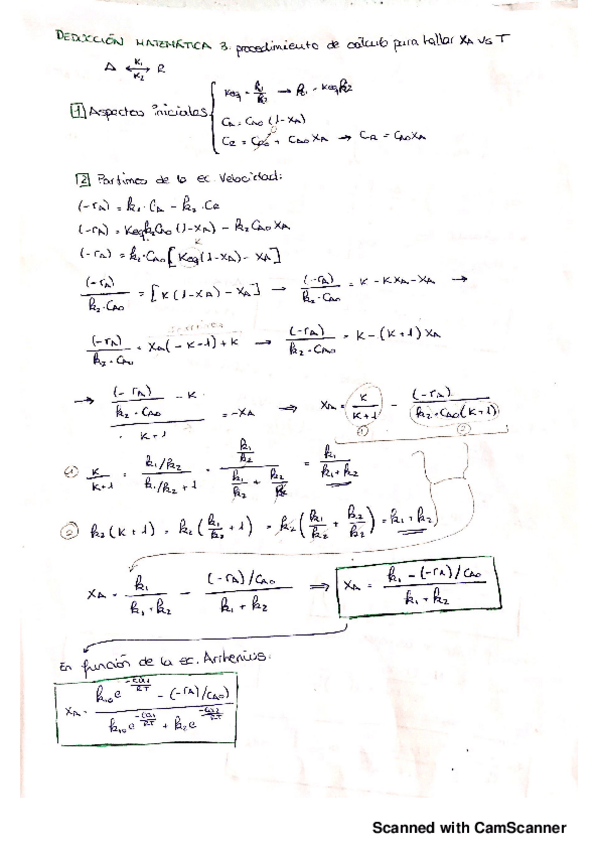 DEDUCCIÓN MATEMÁTICA 3: procedimiento de cálculo para hallar XA vs T
A ⇄ R (k1, k2)
1 Aspectos iniciales { Keq = k1/k2 → k1 = Keq k2
CA = CAO (1-XA)
CR = CRO + CAO XA → CR = CAO XA
2 Partimos de la ec. Velocidad:
(-rA) = k1 · CA - k2 · CR
(-rA) = Keq k2 CAO (1-XA) - k2 CAO XA
(-rA) = k2 · CAO [Keq (1-XA) - XA]
(-rA) / k2 · CAO = [K (1-XA) - XA] → (-rA) / k2 · CAO = K - KXA - XA →
(-rA) / k2 · CAO = XA (-K-1) + K → (-rA) / k2 · CAO = K - (K+1) XA
→ ((-rA) / k2 · CAO - K) / K+1 = -XA ⇒ XA = K / K+1 - (-rA) / k2 · CAO (K+1)
① K / K+1 = (k1/k2) / (k1/k2 + 1) = (k1/k2) / (k1/k2 + k2/k2) = k1 / k1+k2
② k2 (K+1) = k2 (k1/k2 + 1) = k2 (k1/k2 + k2/k2) = k1 + k2
XA = k1 / k1+k2 - (-rA)/CAO / k1+k2 ⇒ XA = k1 - (-rA)/CAO / k1+k2
En función de la ec. Arrhenius:
XA = (k10 e^(-Ea1/RT) - (-rA)/CAO) / (k10 e^(-Ea1/RT) + k2 e^(-Ea2/RT))
Scanned with CamScanner